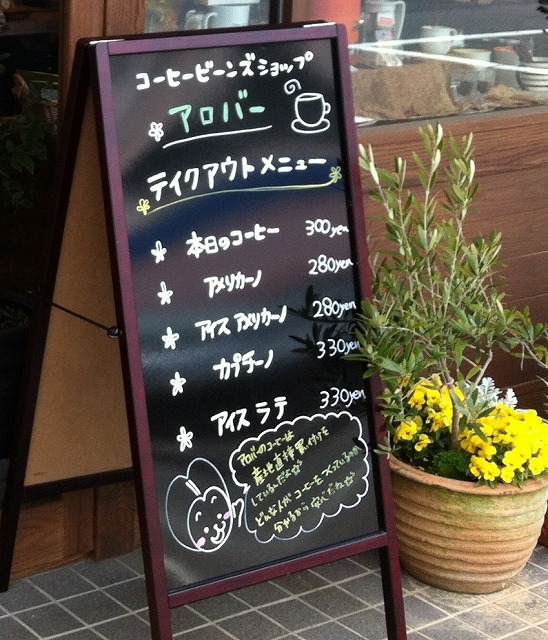 コーヒービーンズショップ
アロバー
テイクアウトメニュー
本日のコーヒー 300yen
アメリカーノ 280yen
アイスアメリカーノ 280yen
カプチーノ 330yen
アイスラテ 330yen
アロバーのコーヒーは
産地直接買い付けを
しているんだよな
どんな人がコーヒーをつくっているのか
分かるから安心だねな